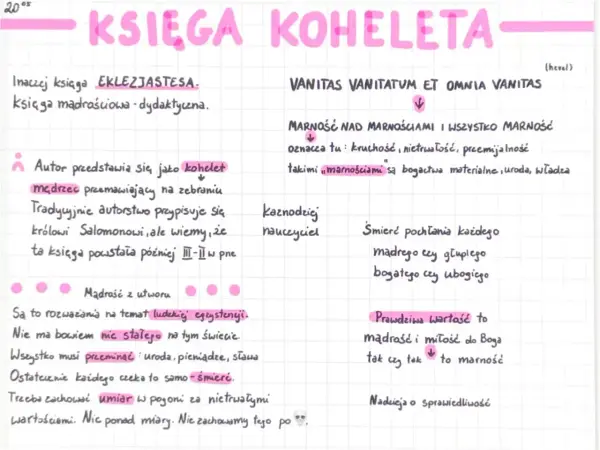 20⁰⁵
KSIĘGA KOHELETA
Inaczej księga EKLEZJASTESA.
Księga mądrościowa - dydaktyczna.
Autor przedstawia się jako kohelet
mędrzec przemawiający na zebraniu
Tradycyjnie autorstwo przypisuje się
królowi Salomonowi, ale wiemy, że
ta księga powstała później III-II w pne
kaznodziej
nauczyciel
Mądrość z utworu
Są to rozważania na temat ludzkiej egzystencji.
Nie ma bowiem nic stałego na tym świecie.
Wszystko musi przeminąć: uroda, pieniądze, sława
Ostatecznie każdego czeka to samo - śmierć.
Trzeba zachować umiar w pogoni za nietrwałymi
wartościami. Nic ponad miary. Nie zachowamy tego po
(hevel)
VANITAS VANITATUM ET OMNIA VANITAS
MARNOŚĆ NAD MARNOŚCIAMI I WSZYSTKO MARNOŚĆ
oznacza tu: kruchość, nietrwałość, przemijalność
takimi „marnościami" są bogactwa materialne, uroda, władza
Śmierć pochłania każdego
mądrego czy głupiego
bogatego czy ubogiego
Prawdziwa wartość to
mądrość i miłość do Boga
tak czy tak to marność
Nadzieja o sprawiedliwość